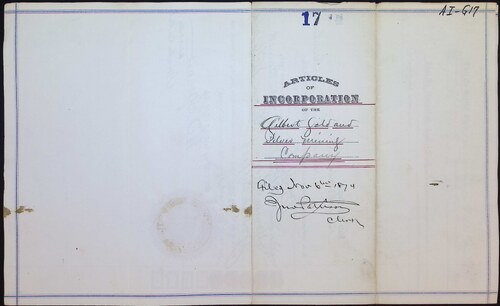 17
AI-G17
ARTICLES
OF
INCORPORATION
OF THE
Gilbert Gold and
Silver Mining
Company
Filed Nov 6th 1874
Clerk